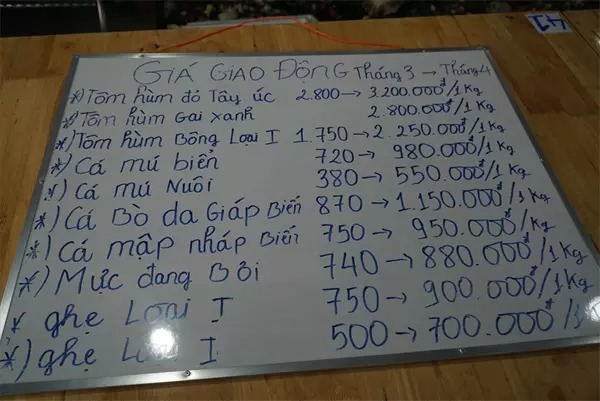 GIÁ GIAO ĐỘNG Tháng 3 → Tháng 4
*) Tôm hùm đỏ Tây úc 2.800 → 3.200.000đ/1 Kg
*) Tôm hùm Gai xanh 2.800.000đ/1 Kg
*) Tôm hùm Bông Loại I 1.750 → 2.250.000đ/1 Kg
*) Cá mú biển 720 → 980.000đ/1 Kg
*) Cá mú Nuôi 380 → 550.000đ/1 Kg
*) Cá Bò da Giáp Biển 870 → 1.150.000đ/1 Kg
*) Cá mập nháp Biển 750 → 950.000đ/1 Kg
*) Mực đang Bơi 740 → 880.000đ/1 Kg
* ghẹ Loại I 750 → 900.000đ/1 Kg
*) ghẹ I 500 → 700.000đ/1